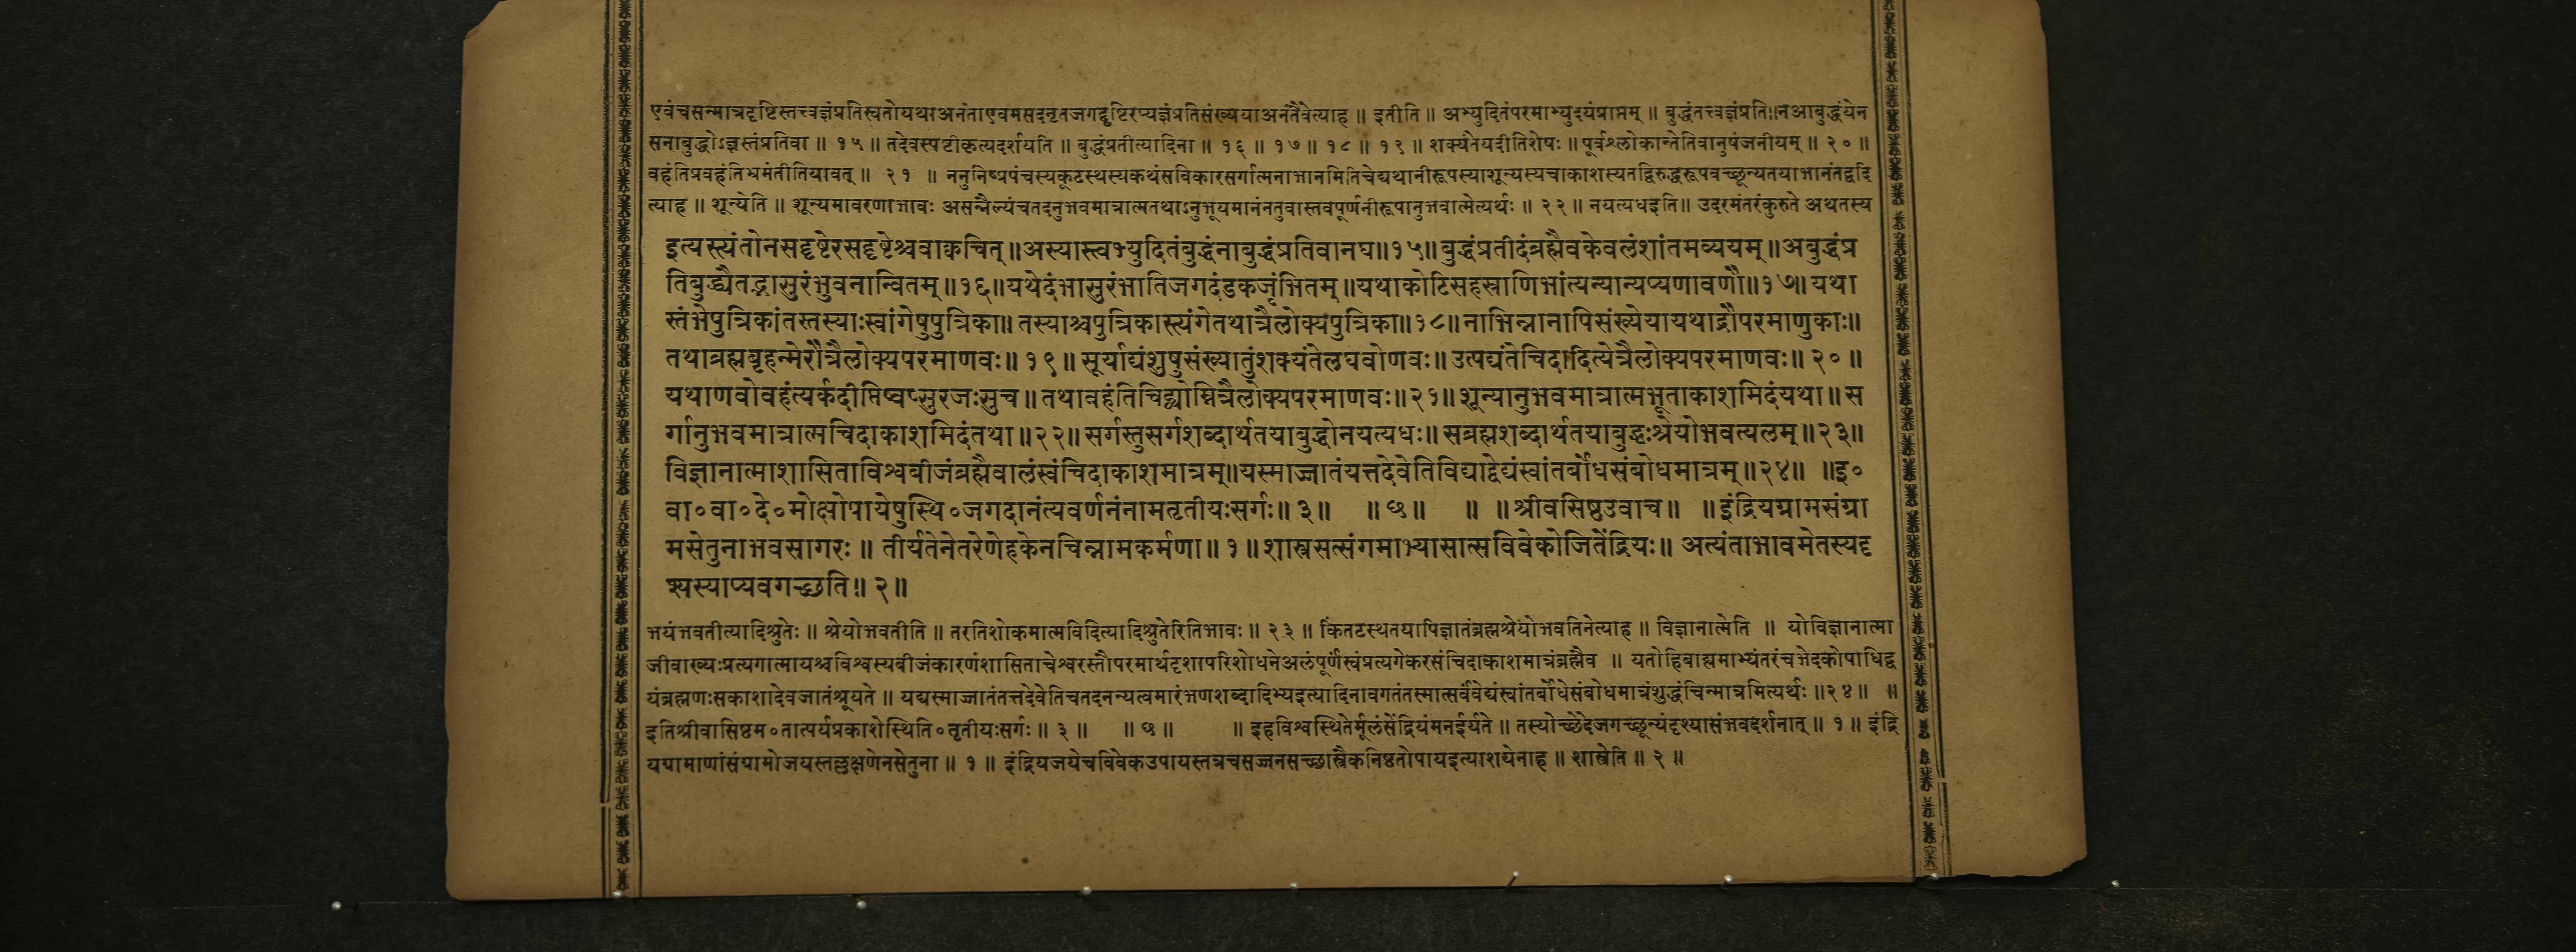 एवंचसन्मात्रदृष्टिस्तत्त्वज्ञंप्रतिस्वतोयथाअनंताएवमसदनृतजगद्दृष्टिरप्यज्ञंप्रतिसंख्ययाअनंतैवेत्याह ॥ इतीति ॥ अभ्युदितंपरमाभ्युदयंप्राप्तम् ॥ बुद्धंतत्त्वज्ञंप्रति॥नआबुद्धंयेन
सनाबुद्धोऽज्ञस्तंप्रतिवा ॥ १५ ॥ तदेवस्पष्टीकृत्यदर्शयति ॥ बुद्धंप्रतीत्यादिना ॥ १६ ॥ १७ ॥ १८ ॥ १९ ॥ शक्यंतेयदीतिशेषः ॥ पूर्वश्लोकान्तेतिवानुषंजनीयम् ॥ २० ॥
वहंतिप्रवहंतिभ्रमंतीतियावत् ॥ २१ ॥ ननुनिष्प्रपंचस्यकूटस्थस्यकथंसविकारसर्गात्मनाभानमितिचेद्यथानीरूपस्याशून्यस्यचाकाशस्यतद्विरुद्धरूपवच्छून्यतयाभानंतद्वदि
त्याह ॥ शून्येति ॥ शून्यमावरणाभावः असन्नैल्यंचतदनुभवमात्रात्मतथाऽनुभूयमानंनतुवास्तवपूर्णनीरूपानुभवात्मेत्यर्थः ॥ २२ ॥ नयत्यधइति॥ उदरमंतरंकुरुते अथतस्य
इत्यस्त्यंतोनसद्दृष्टेरसद्दृष्टेश्चवाक्वचित्॥अस्यास्त्वभ्युदितंबुद्धंनाबुद्धंप्रतिवानघ॥१५॥बुद्धंप्रतीदंब्रह्मैवकेवलंशांतमव्ययम्॥अबुद्धंप्र
तिबुद्ध्यैतद्भासुरंभुवनान्वितम्॥१६॥यथेदंभासुरंभातिजगदंडकजृंभितम्॥यथाकोटिसहस्राणिभांत्यन्यान्यप्यणावणौ॥१७॥यथा
स्तंभेपुत्रिकांतस्तस्याःस्वांगेषुपुत्रिका॥ तस्याश्चपुत्रिकास्त्यंगेतथात्रैलोक्यपुत्रिका॥१८॥नाभिन्नानापिसंख्येयायथाद्रौपरमाणुकाः॥
तथाब्रह्मबृहन्मेरौत्रैलोक्यपरमाणवः॥ १९॥ सूर्याद्यंशुषुसंख्यातुंशक्यंतेलघवोणवः॥ उत्पद्यंतेचिदादित्येत्रैलोक्यपरमाणवः॥ २० ॥
यथाणवोवहंत्यर्कदीप्तिष्वप्सुरजःसुच॥तथावहंतिचिद्व्योम्नित्रैलोक्यपरमाणवः॥२१॥शून्यानुभवमात्रात्मभूताकाशमिदंयथा॥स
र्गानुभवमात्रात्मचिदाकाशमिदंतथा॥२२॥सर्गस्तुसर्गशब्दार्थतयाबुद्धोनयत्यधः॥सब्रह्मशब्दार्थतयाबुद्धःश्रेयोभवत्यलम्॥२३॥
विज्ञानात्माशासिताविश्वबीजंब्रह्मैवालंस्वंचिदाकाशमात्रम्॥यस्माज्जातंयत्तदेवेतिविद्याद्वेद्यंस्वांतर्बोधसंबोधमात्रम्॥२४॥ ॥इ०
वा०वा०दे०मोक्षोपायेषुस्थि०जगदानंत्यवर्णनंनामतृतीयःसर्गः॥३॥ ॥ ६॥ ॥ ॥श्रीवसिष्ठउवाच॥ ॥इंद्रियग्रामसंग्रा
मसेतुनाभवसागरः॥ तीर्यतेनेतरेणेहकेनचिन्नामकर्मणा॥१॥शास्त्रसत्संगमाभ्यासात्सविवेकोजितेंद्रियः॥ अत्यंताभावमेतस्यदृ
श्यस्याप्यवगच्छति॥ २॥
भयंभवतीत्यादिश्रुतेः ॥ श्रेयोभवतीति ॥ तरतिशोकमात्मविदित्यादिश्रुतेरितिभावः ॥ २३ ॥ किंतटस्थतयापिज्ञातंब्रह्मश्रेयोभवतिनेत्याह ॥ विज्ञानात्मेति ॥ योविज्ञानात्मा
जीवाख्यःप्रत्यगात्मायश्चविश्वस्यबीजंकारणंशासिताचेश्वरस्तौपरमार्थदृशापरिशोधनेअलंपूर्णंस्वंप्रत्यगेकरसंचिदाकाशमात्रंब्रह्मैव ॥ यतोहिबाह्यमाभ्यंतरंचभेदकोपाधिद्व
यंब्रह्मणःसकाशादेवजातंश्रूयते ॥ यद्यस्माज्जातंतत्तदेवेतिचतदनन्यत्वमारंभणशब्दादिभ्यइत्यादिनावगतंतस्मात्सर्वंवेद्यंस्वांतर्बोधेसंबोधमात्रंशुद्धंचिन्मात्रमित्यर्थः ॥२४॥ ॥
इतिश्रीवासिष्ठम०तात्पर्यप्रकाशेस्थिति०तृतीयःसर्गः ॥ ३ ॥ ॥ ६ ॥ ॥ इहविश्वस्थितेर्मूलंसेंद्रियंमनईर्यते ॥ तस्योच्छेदेजगच्छून्यंदृश्यासंभवदर्शनात् ॥ १ ॥ इंद्रि
यग्रामाणांसंग्रामोजयस्तल्लक्षणेनसेतुना ॥ १ ॥ इंद्रियजयेचविवेकउपायस्तत्रचसज्जनसच्छास्त्रैकनिष्ठतोपायइत्याशयेनाह ॥ शास्त्रेति ॥ २ ॥